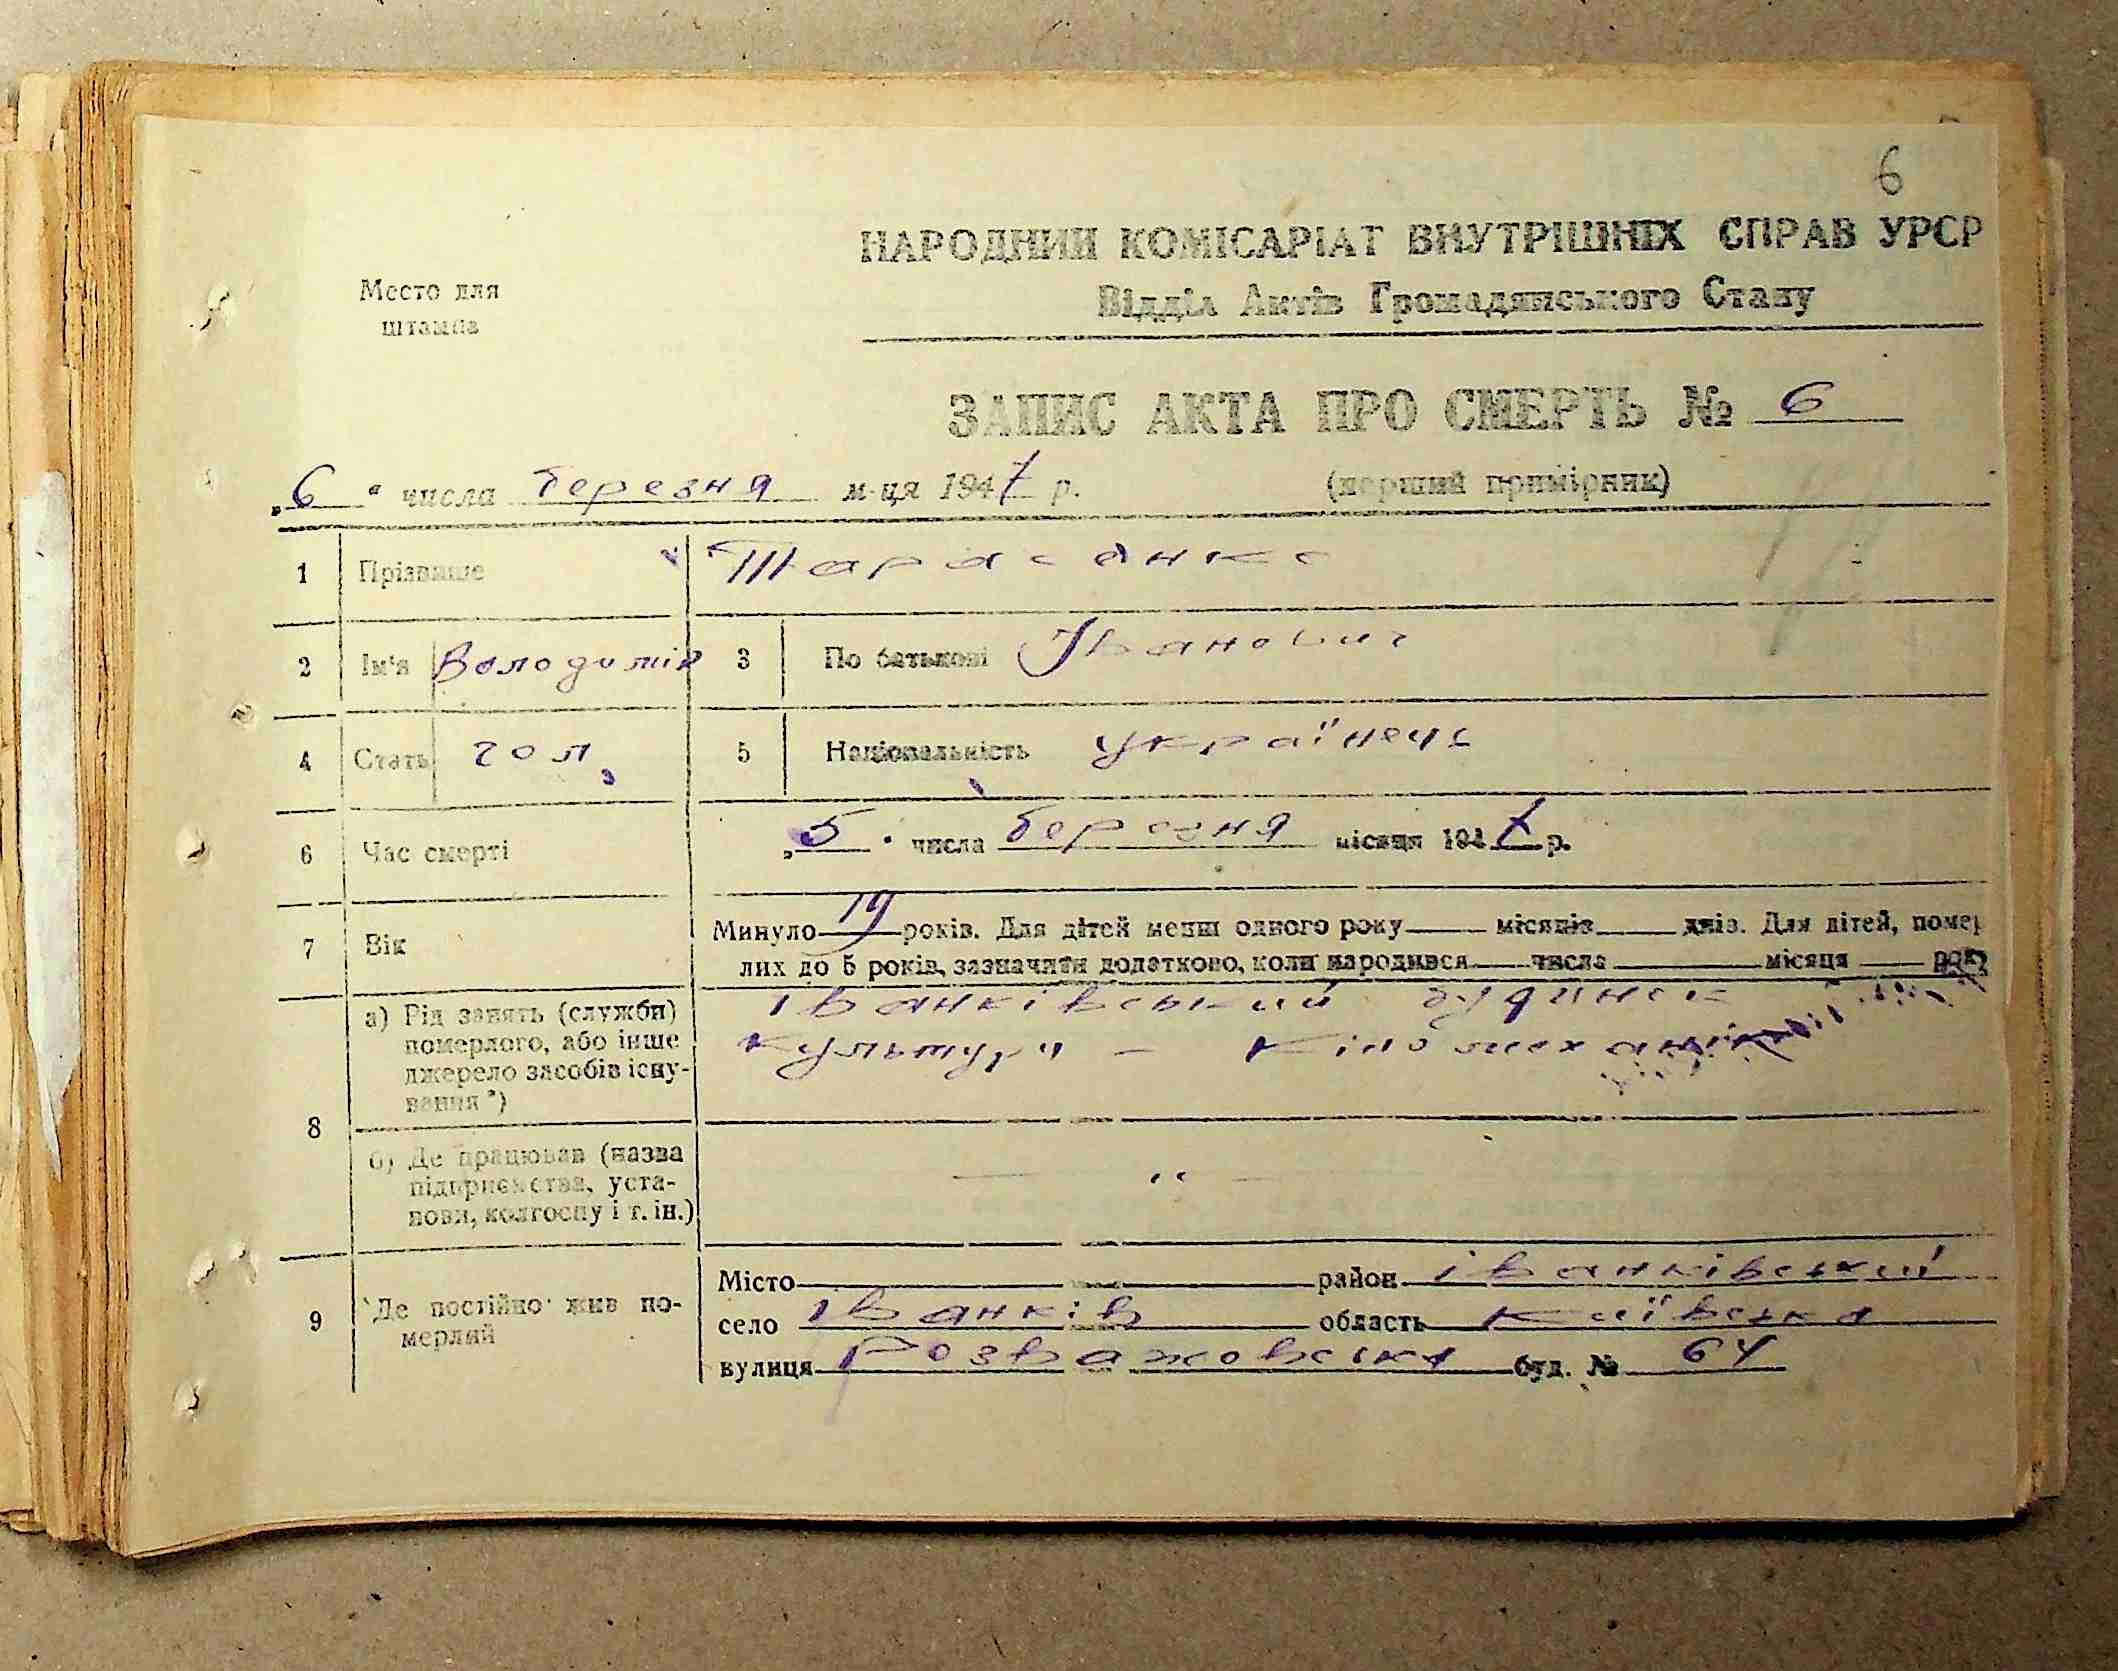 6
НАРОДНИЙ КОМІСАРІАТ ВНУТРІШНІХ СПРАВ УРСР
Место для штампа
Відділ Актів Громадянського Стану
ЗАПИС АКТА ПРО СМЕРТЬ № 6
„6“ числа березня м-ця 1947 р. (перший примірник)
1 Прізвище Тарасенко
2 Ім'я Володимір 3 По батькові Іванович
4 Стать чол. 5 Національність українець
6 Час смерті „5“ числа березня місяця 1947 р.
7 Вік Минуло 19 років. Для дітей менш одного року місяців днів. Для дітей, помер
лих до 5 років, зазначити додатково, коли народився числа місяця року
8 а) Рід занять (служби) померлого, або інше джерело засобів існування*) Іванківський будинок
культури – Кіномеханік
б) Де працював (назва підприємства, установи, колгоспу і т. ін.) — " —
9 Де постійно жив померлий Місто район Іванківський
село Іванків область Київська
вулиця Розважовська буд. № 64